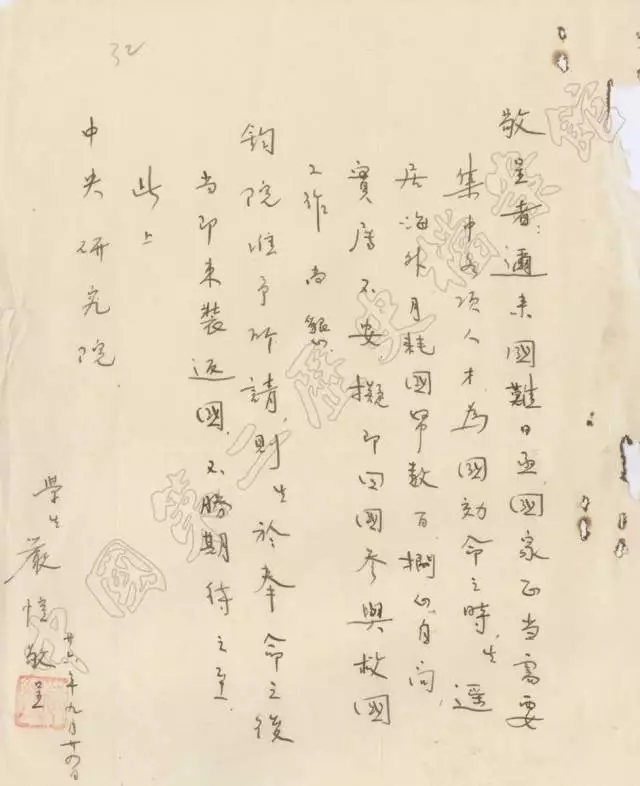 32
敬呈者:邇來國難日亟國家正当需要
集中各项人才為國効命之時,生遥
居海外月耗國帑数百,捫心自问,
實属不安,擬即回國参與救國
工作尚懇
钧院准予所請,則生於奉命之後
当即束装返國,不勝期待之至.
此上
中央研究院.
學生嚴愷敬呈
廿六年九月十四日
中國第二歷史檔案館